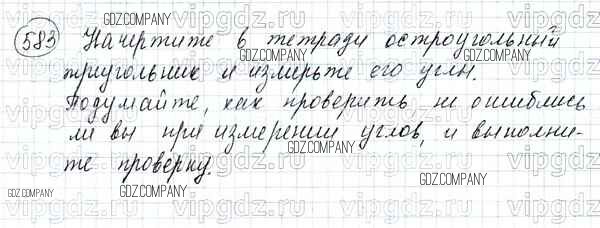 583 Начертите в тетради остроугольный
треугольник и измерьте его углы.
Подумайте, как проверить не ошиблись
ли вы при измерении углов, и выполни-
те проверку.
GDZ.COMPANY
GDZ.COMPANY
GDZ.COMPANY
GDZ.COMPANY
GDZ.COMPANY
GDZ.COMPANY
GDZ.COMPANY
GDZ.COMPANY
vipgdz.ru